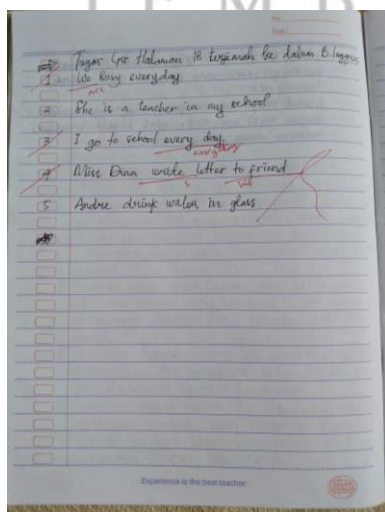 No
Date
Tugas Lks Halaman 18 terjemah ke dalam B. Inggris
1 We busy everyday
are
2 She is a teacher in my school
3 I go to school every day
4 Miss Dina write letter to friend
s
5 Andre drink water in glass
Experience is the best teacher